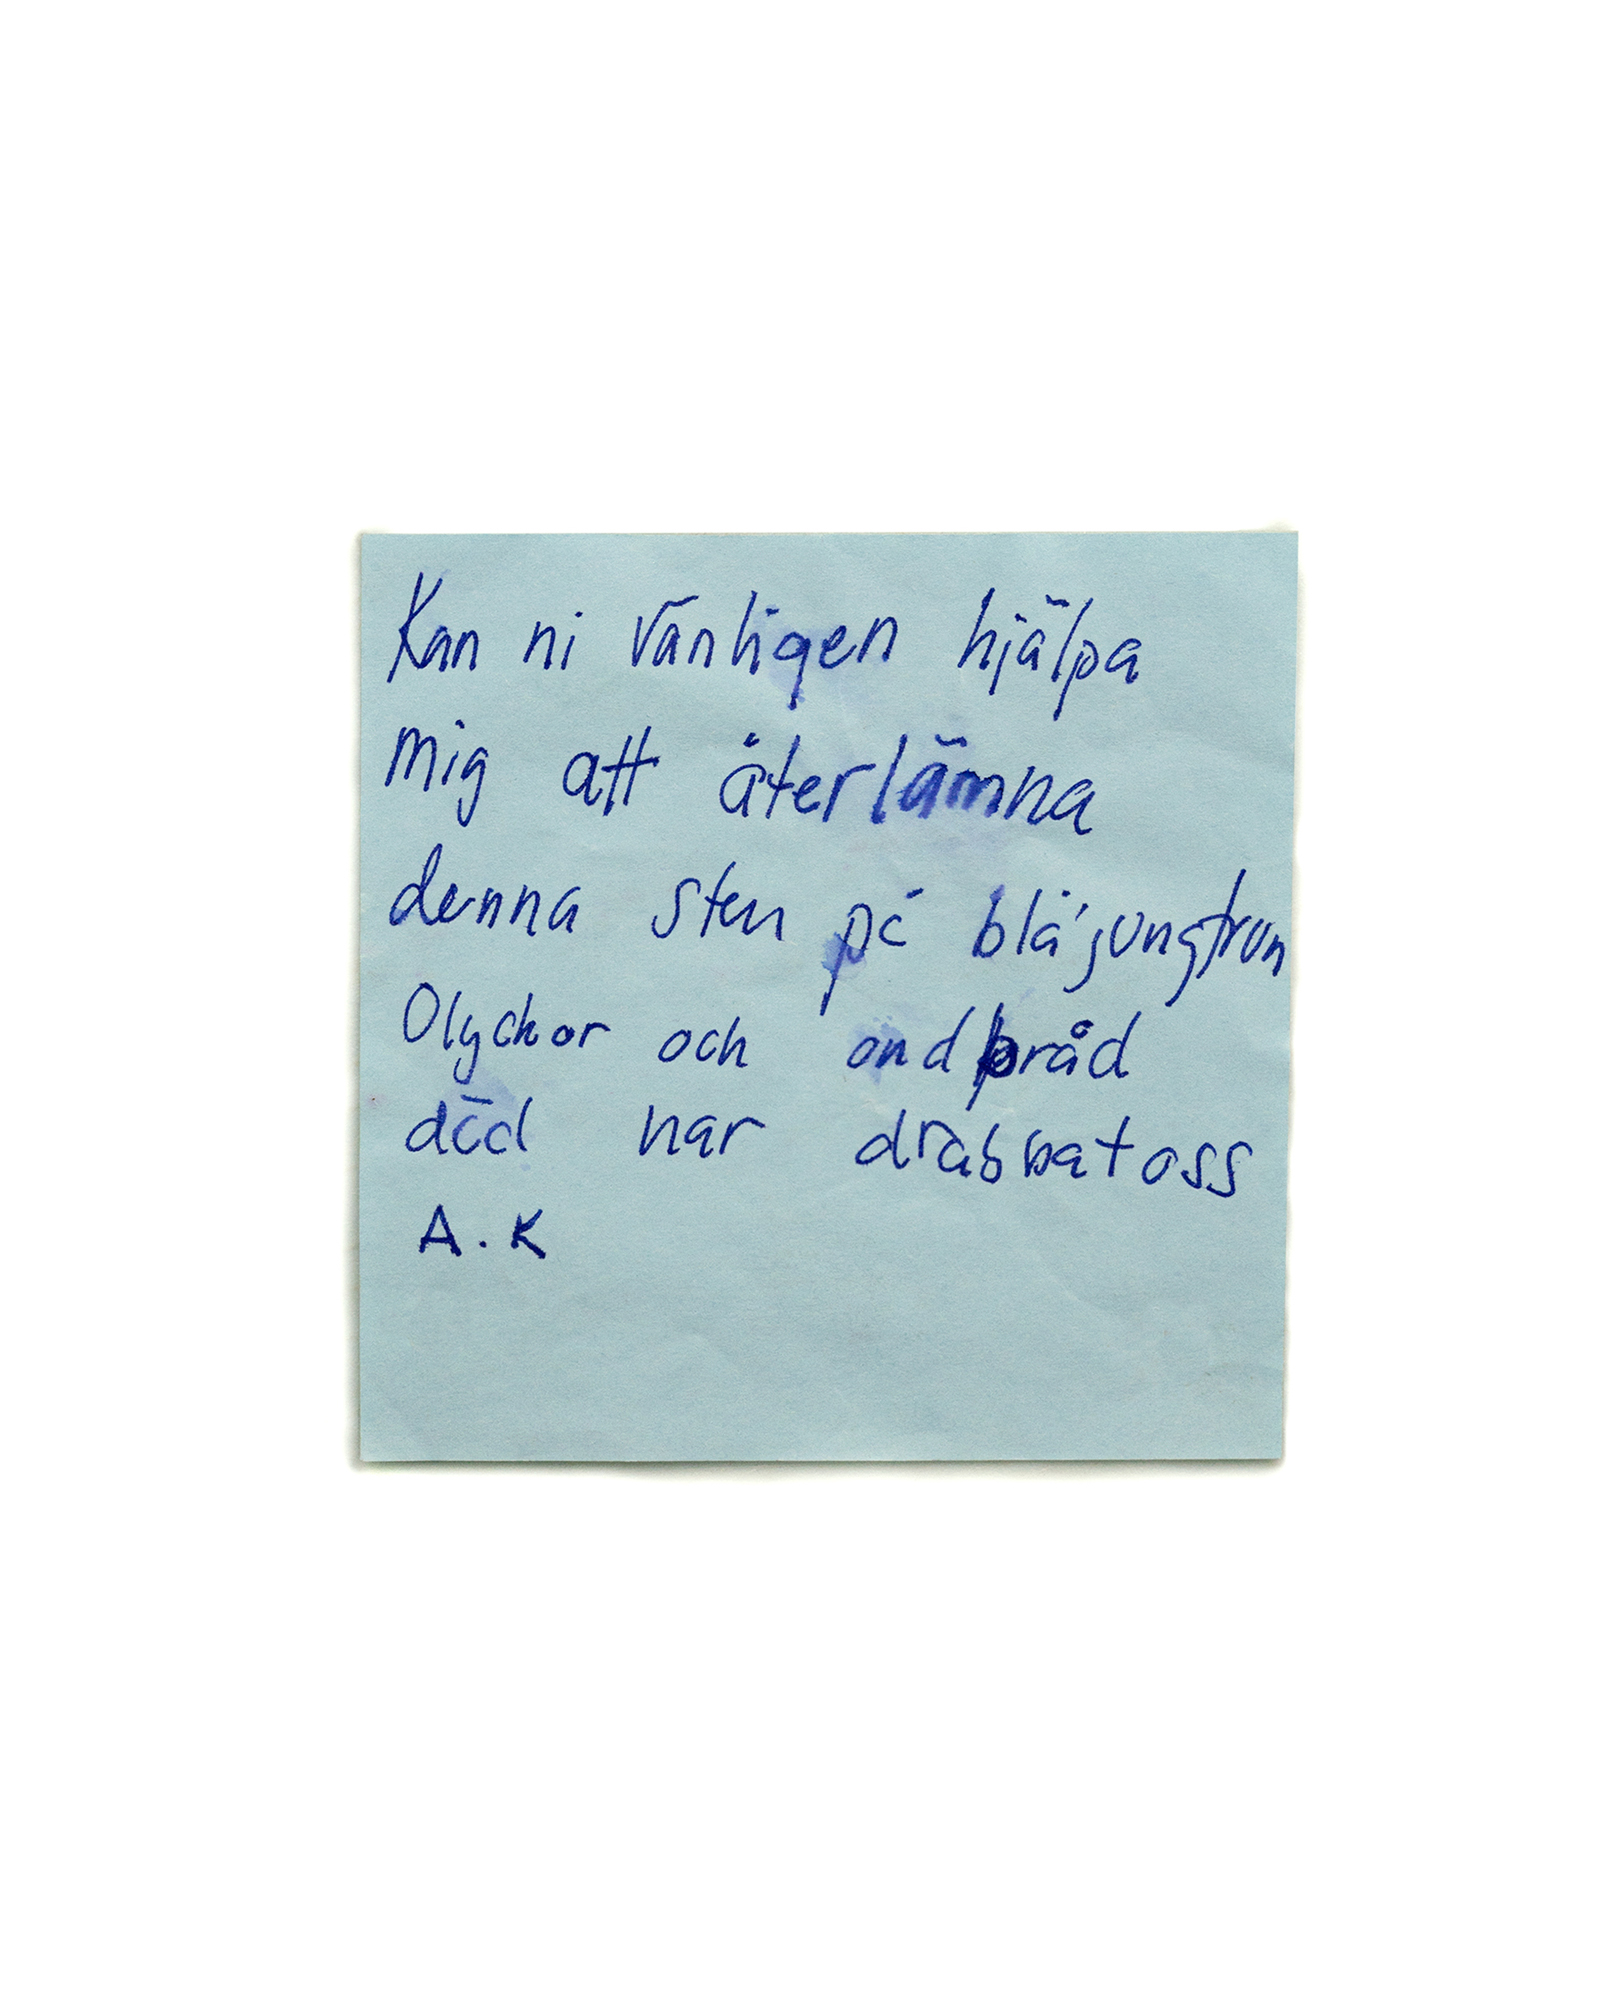 Kan ni vänligen hjälpa
mig att återlämna
denna sten på blå jungfrun
Olyckor och ond bråd
död har drabbat oss
A.K